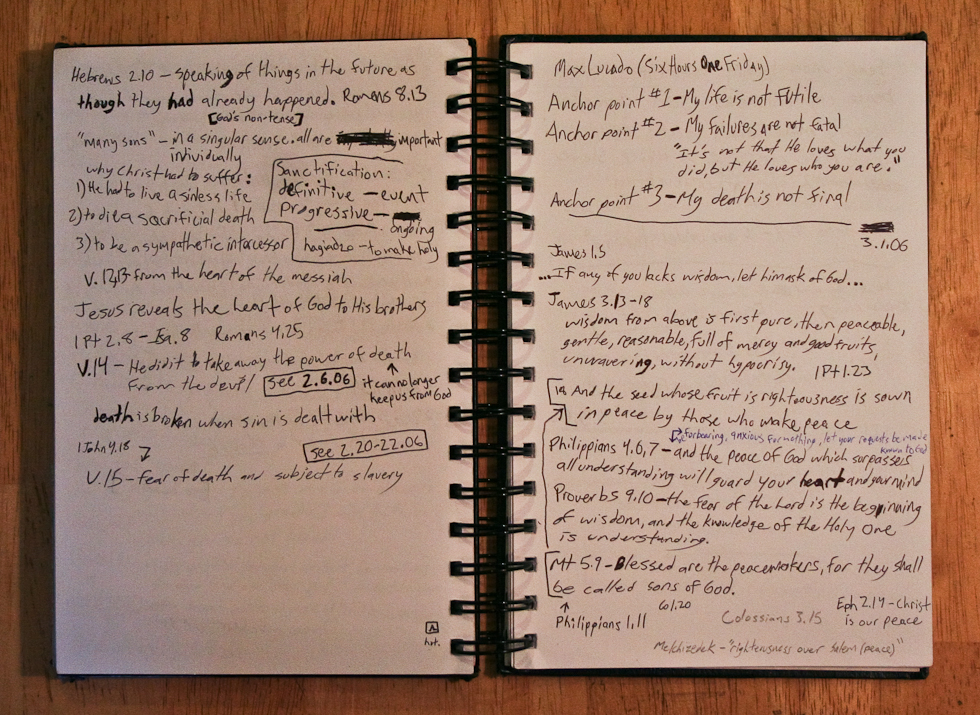 Hebrews 2.10 - speaking of things in the future as
though they had already happened. Romans 8.13
[God's non-tense]
"many sons" - in a singular sense. all are important
individually
why Christ had to suffer:
1) He had to live a sinless life
2) to die a sacrificial death
3) to be a sympathetic intercessor
Sanctification:
definitive - event
Progressive -
ongoing
hagiadzo - to make holy
V. 12,13 from the heart of the messiah
Jesus reveals the heart of God to His brothers
1 Pt 2.8 - Isa. 8 Romans 4.25
V.14 - He did it to take away the power of death
From the devil see 2.6.06
it can no longer
keep us from God
death is broken when sin is dealt with
1 John 4.18
see 2.20-22.06
V.15 - fear of death and subject to slavery
A
hrt.
Max Lucado (Six Hours One Friday)
Anchor point #1 - My life is not futile
Anchor point #2 - My failures are not fatal
"It's not that He loves what you
did, but He loves who you are."
Anchor point #3 - My death is not final
3.1.06
James 1.5
...If any of you lacks wisdom, let him ask of God...
James 3.13-18
wisdom from above is first pure, then peaceable,
gentle, reasonable, full of mercy and good fruits,
unwavering, without hypocrisy. 1 Pt 1.23
18 And the seed whose fruit is righteousness is sown
in peace by those who make peace
forbearing, anxious for nothing, let your requests be made
known to God
Philippians 4.6,7 - and the peace of God which surpasses
all understanding will guard your heart and your mind
Proverbs 9.10 - the fear of the Lord is the beginning
of wisdom, and the knowledge of the Holy One
is understanding.
Mt 5.9 - Blessed are the peacemakers, for they shall
be called sons of God.
Philippians 1.11
Col 1.20
Colossians 3.15
Eph 2.14 - Christ
is our peace
Melchizedek - "righteousness over Salem (peace)"